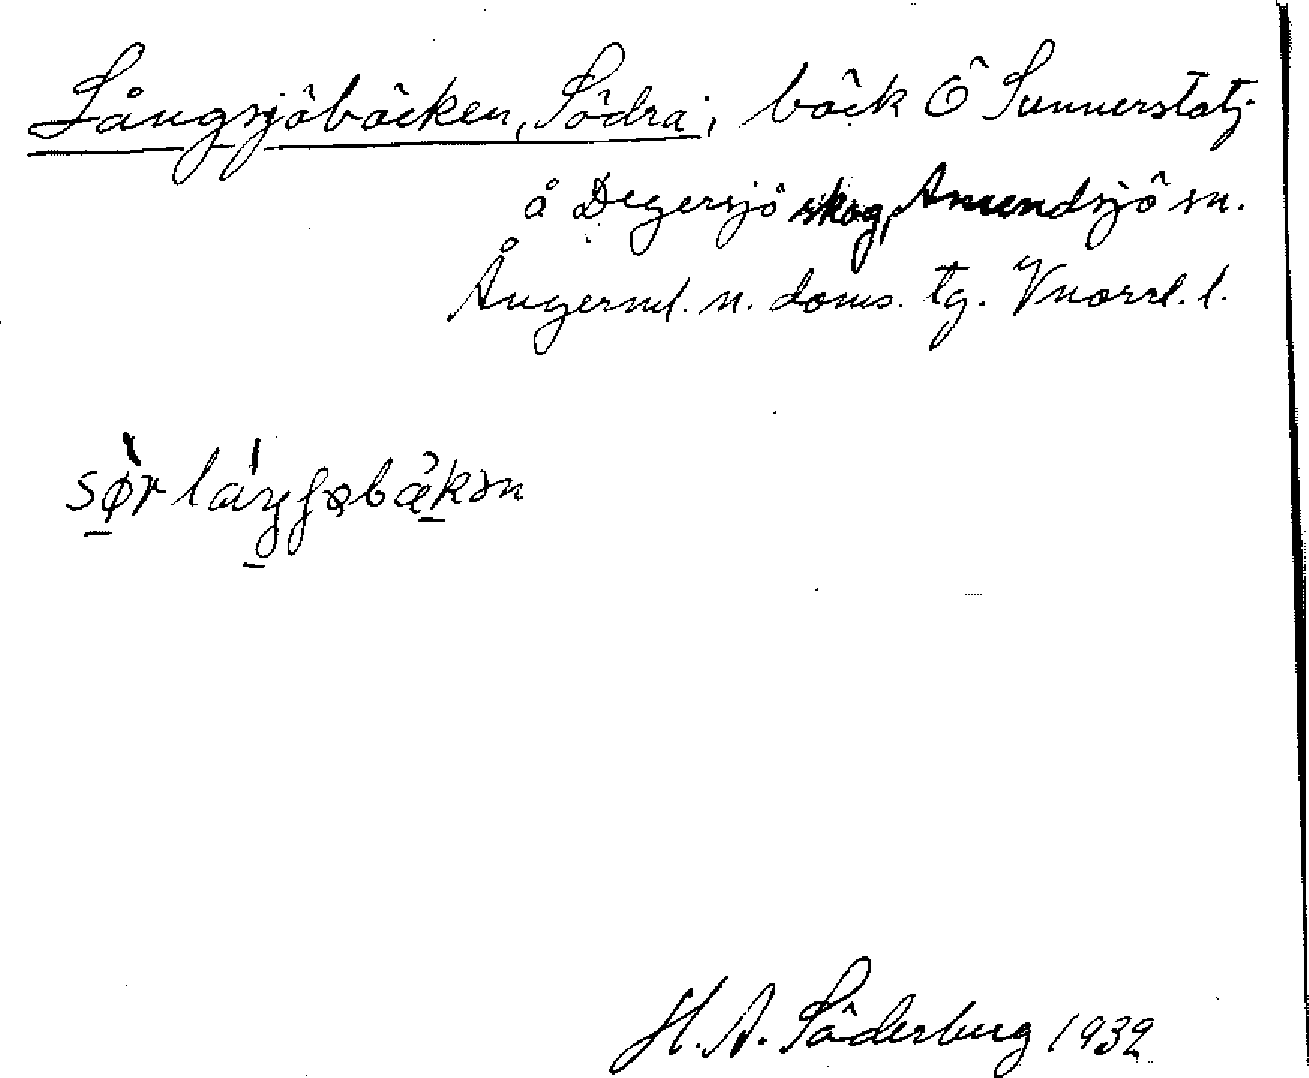 Långsjöbäcken, Södra; bäck Ö Sunnerstatj.
å Degersjö skog, Anundsjö sn.
Ångerml. n. doms. tg. Vnorrl. l.
sø̀r láŋʃøbækən
H. A. Söderberg 1932